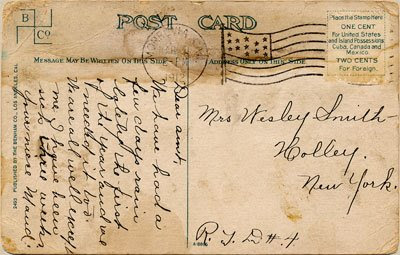 B
& CO
POST CARD
MESSAGE MAY BE WRITTEN ON THIS SIDE
ADDRESS ONLY ON THIS SIDE
Place the Stamp Here
ONE CENT
For United States
and Island Possessions
Cuba, Canada and
Mexico.
TWO CENTS
For Foreign.
Dear aunt.
We have had a
few days rain
lately the first
this year and we
needed it too.
We are all well except
me, I have been
sick three weeks
Maud.
Mrs Wesley Smith-
Holley.
New York.
R. F. D # 4
2403 PUBLISHED BY THE BENHAM CO., LOS ANGELES, CAL.